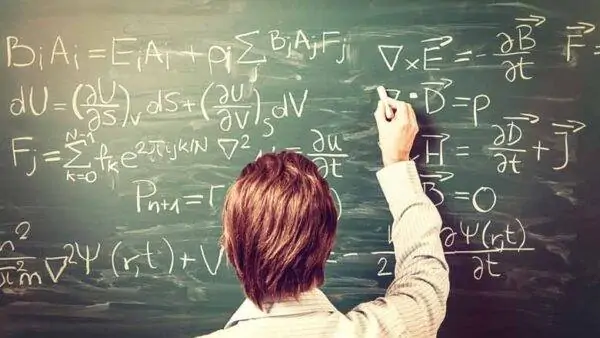 BᵢAᵢ = EᵢAᵢ + ρᵢ ∑ⱼ BⱼAⱼFⱼ
dU = (∂U/∂S)ᵥ dS + (∂U/∂V)ₛ dV
Fⱼ = ∑_{k=0}^{N-1} fₖ e^{2πijk/N} ∇² u = ∂u/∂t
Pₙ₊₁ = r
π²m ∇²Ψ(r,t) + V ∂Ψ(r,t)/∂t
∇×E⃗ = -∂B⃗/∂t F⃗ =
∇·D⃗ = ρ
H⃗ = ∂D⃗/∂t + J⃗
B⃗ = 0